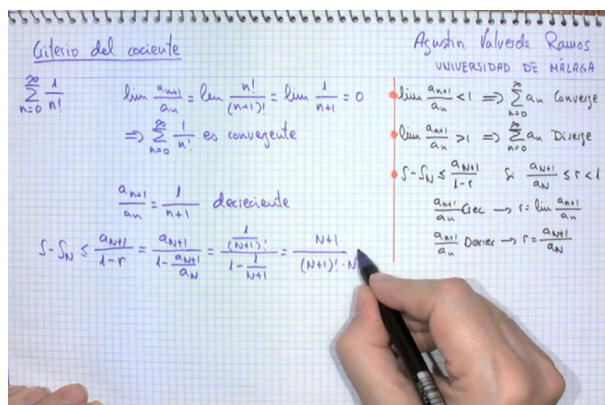 Criterio del cociente
Agustín Valverde Ramos
UNIVERSIDAD DE MÁLAGA
∞∑n=0 1/n!
lim a_{n+1}/a_n = lim n!/(n+1)! = lim 1/(n+1) = 0
⟹ ∞∑n=0 1/n! es convergente
a_{n+1}/a_n = 1/(n+1) decreciente
S - S_N ≤ a_{N+1}/(1-r) = a_{N+1}/(1 - a_{N+1}/a_N) = (1/(N+1)!)/(1 - 1/(N+1)) = (N+1)/((N+1)!·N
lim a_{n+1}/a_n < 1 ⟹ ∞∑n=0 a_n Converge
lim a_{n+1}/a_n > 1 ⟹ ∞∑n=0 a_n Diverge
S - S_N ≤ a_{N+1}/(1-r) Si a_{N+1}/a_N ≤ r < 1
a_{n+1}/a_n Crec → r = lim a_{n+1}/a_n
a_{n+1}/a_n Decrec → r = a_{N+1}/a_N